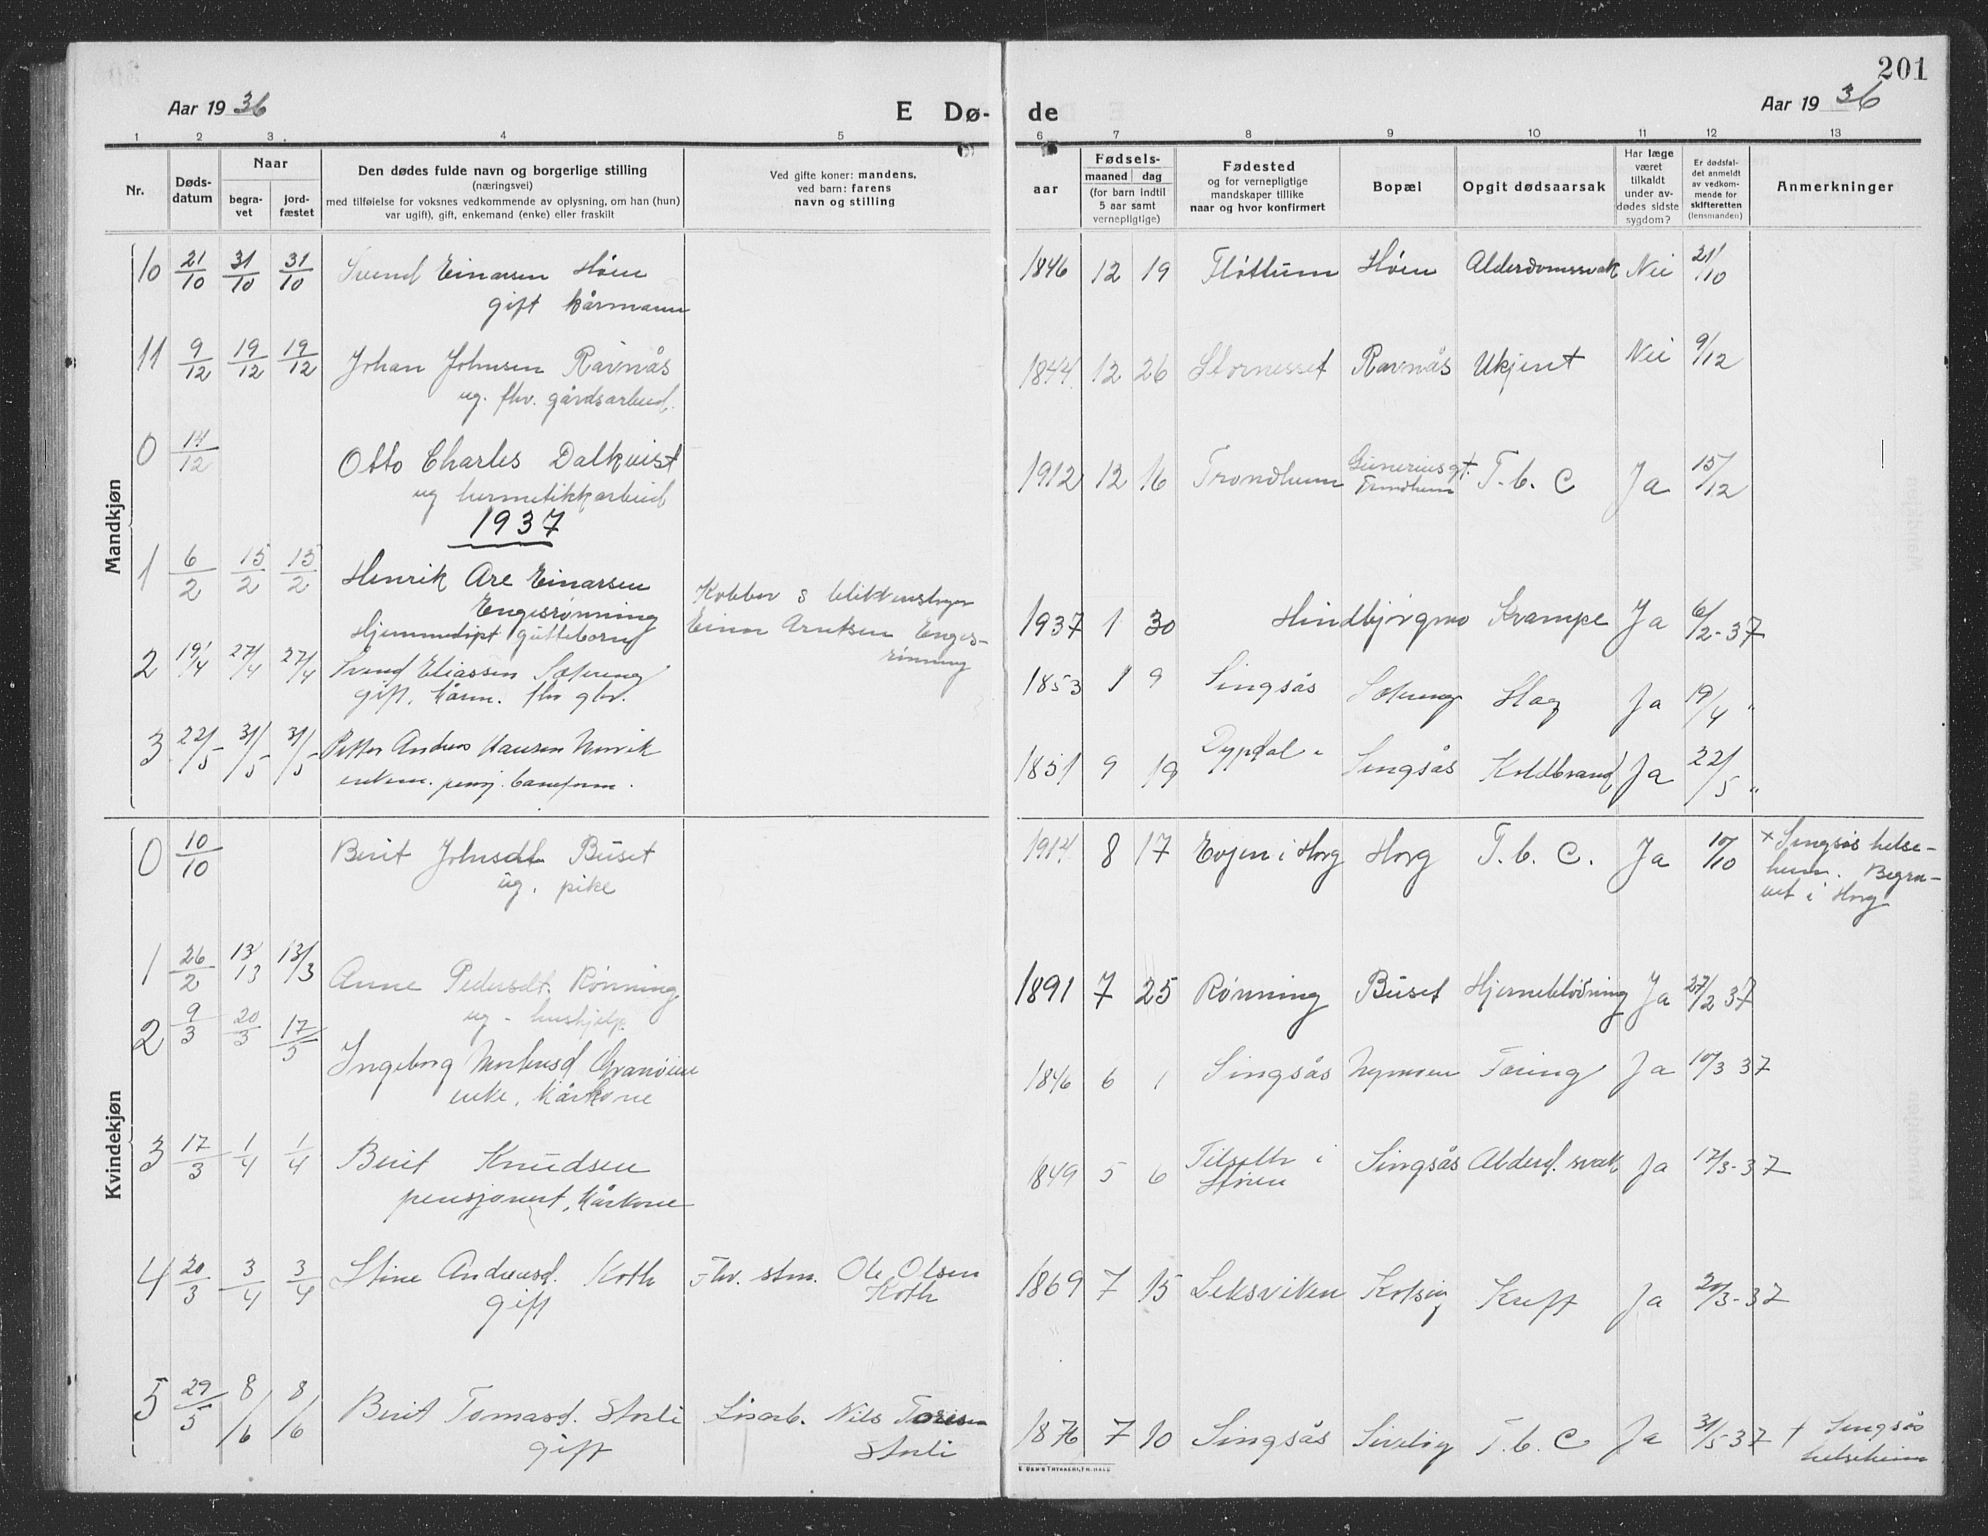 201
Aar 1936 E Dø- de Aar 1936
1 2 3. 4 5 6 7 8 9 10 11 12 13
Nr.
Døds-
datum
Naar
begra-
vet
jord-
fæstet
Den dødes fulde navn og borgerlige stilling
(næringsvei)
med tilføielse for voksnes vedkommende av oplysning, om han (hun)
var ugift), gift, enkemand (enke) eller fraskilt
Ved gifte koner: mandens,
ved barn: farens
navn og stilling
aar
Fødsels-
maaned dag
(for barn indtil
5 aar samt
vernepligtige)
Fødested
og for vernepligtige
mandskaper tillike
naar og hvor konfirmert
Bopæl
Opgit dødsaarsak
Har læge
været
tilkaldt
under av-
dødes sidste
sygdom?
Er dødsfal-
det anmeldt
av vedkom-
mende for
skifteretten
(lensmanden)
Anmerkninger
Mandkjøn
10 21/10 31/10 31/10 Svend Einarsen Høen 1846 12 19 Fløttum Høen Alderdomssvak Nei 21/10
gift kårmann
11 9/12 19/12 19/12 Johan Johnsen Ravnås 1844 12 26 Stornesset Ravnås Ukjent Nei 9/12
ug. fhv. gårdsarbeid.
0 14/12 Otto Charles Dalkvist 1912 12 16 Trondheim Gunerius gt. Trondheim T. b. C Ja 15/12
ug hermetikkarbeid
1937
1 6/2 15/2 15/2 Henrik Are Einarsen
Engesrønning
Hjemmedøpt guttebarn
Kobber & blikkenslager
Einar Arntsen Enges-
rønning
1937 1 30 Hindbjørgmo Krampe Ja 6/2-37
2 19/4 27/4 27/4 Svend Eliassen 1853 1 9 Singsås Slag Ja 19/4 "
gift, kårm. fhv gbr.
3 22/5 31/5 31/5 Petter Andreas Hansen 1851 9 19 Dypdal Singsås Koldbrand Ja 22/5 "
enkem. pensj. baneform.
Kvindekjøn
0 10/10 Berit Johnsdt Buset 1914 8 17 Evjen i Horg Horg T. b. C. Ja 10/10 + Singsås helse-
ug. pike heim. Begra-
vet i Horg
1 26/2 13/13 13/3 Anne Pedersdt. Rønning 1891 7 25 Rønning Buset Hjerneblødning Ja 27/2 37
ug - hushjelp.
2 9/3 20/3 17/5 Ingeborg Granøien 1846 6 1 Singsås Nymoen Tæring Ja 10/3 37
enke, kårkone
3 17/3 1/4 1/4 Berit Knudsen 1849 5 6 Tilseth i Støren Singsås Alderd. svak Ja 17/3-37
pensjonert, kårkone
4 20/3 3/4 3/4 Stine Andreasd. Koth Fhv. stm. Ole Olsen 1869 7 15 Leksviken Kotsøy Kreft Ja 20/3-37
gift Koth
5 29/5 8/6 8/6 Berit Tomasd. Storli Løsarb. Nils Toresen 1876 7 10 Singsås T. b. C Ja 31/5 37 + Singsås
gift Storli helseheim
E DEN'S TRYKKERI, TR. HALD